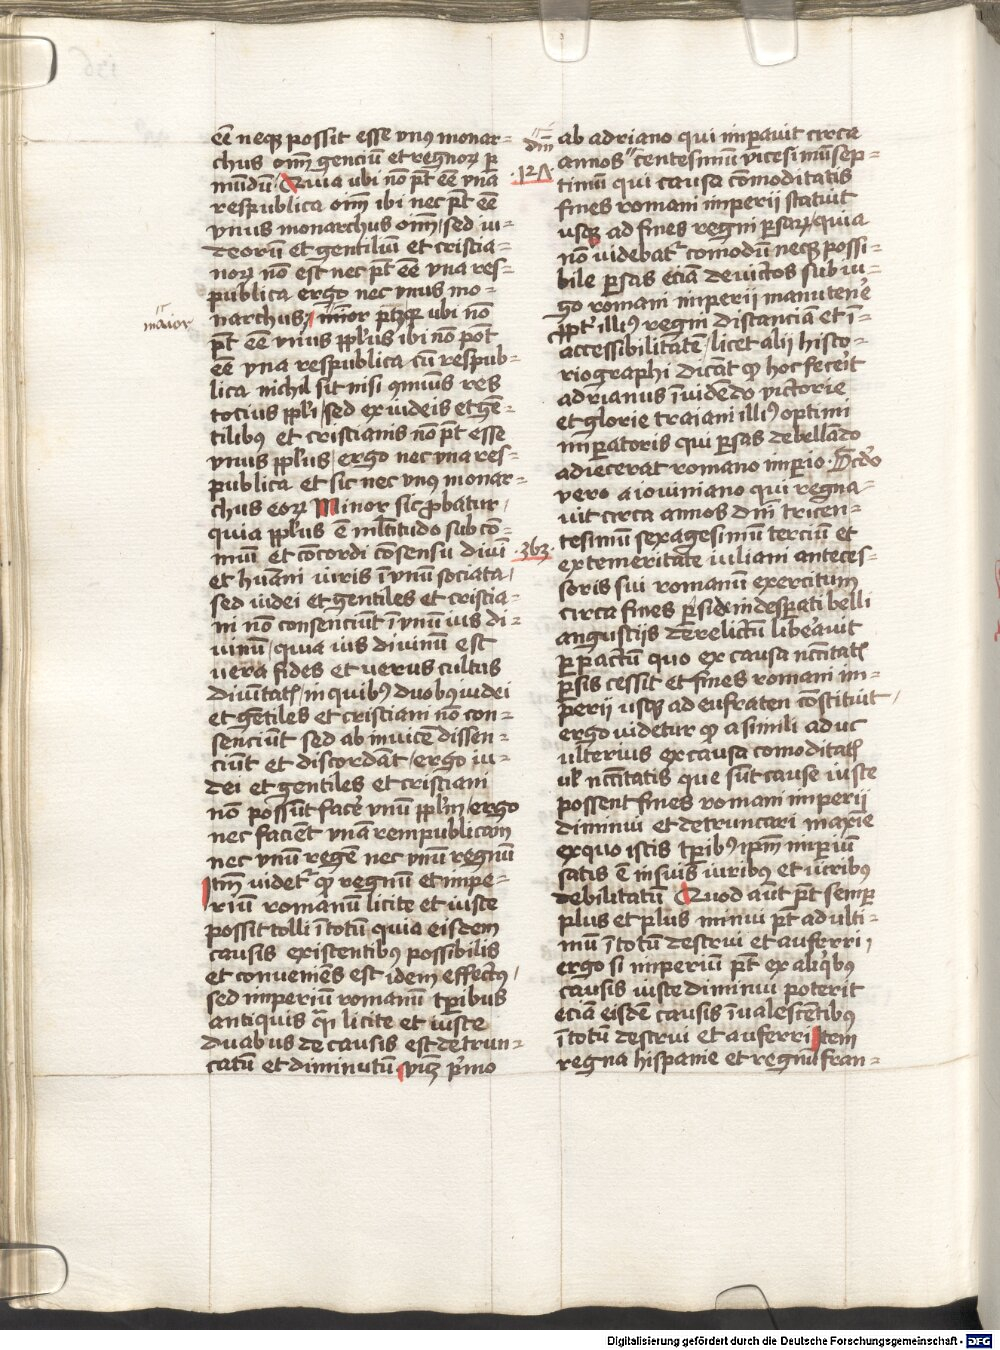 eē neqꝫ possit esse vnꝰ monar-
chus om̄ genciū et regnoꝝ ꝑ
mūdū Quia ubi nō pt̄ eē vna
respublica om̄ ibi nec pt̄ eē
vnus monarchus om̄ / sed iu-
deorū et gentiliū et cristia-
noꝝ nō est nec pt̄ eē vna res-
publica ergo nec vnus mo-
maior
narchus / minor ptꝫ qꝛ ubi nō
pt̄ eē vnus ppl̄us ibi nō pōt
eē vna respublica cū respub-
lica nichil sit nisi om̄ius res
tocius ppl̄i / sed ex iudeis et gē-
tilibꝰ et cristianis nō pt̄ esse
vnus ppl̄us / ergo nec vna res-
publica et sic nec vnꝰ monar-
chus eoꝝ Minor sic ꝓbatur /
quia ppl̄us ē ml̄titudo sub cō-
muī et cōcordi cōsensu diuī
et huāni iuris ī vnū sociata /
sed iudei et gentiles et cristia-
ni nō consenciūt ī vnū ius di-
uinū / quia ius diuinū est
uera fides et verus cultus
diuītatꝭ / in quibꝰ duobꝰ iudei
et gētiles et cristiani nō con-
senciūt sed ab inuicē dissen-
ciūt et discordāt / ergo iu-
dei et gentiles et cristiani
nō possūt facꝰe vnū ppl̄m / ergo
nec faciēt vnā rempublicam
nec vnū regē nec vnū regnū
Itm̄ videtꝰ ꝙ regnū et impe-
riū romanū licite et iuste
possit tolli ī totū quia eisdem
causis existentibꝰ possibilis
et conueniēs est idem effectꝰ /
sed imperiū romanū tꝑibus
antiquis licite et iuste
duabus de causis est detrun-
catū et diminutū pꝰmo
dm̄
ab adriano qui imꝑauit circa
·127·
annos centesimū vicesimū sep-
timū qui causa cōmoditatis
fines romani imperii statuit
usqꝫ ad fines regni ꝑsaꝝ quia
nō uidebatꝰ comodū neqꝫ possi-
bile ꝑsas eciā deuictos sub iu-
go romani imperii manutenꝰe
ꝓptꝰ illiꝰ regni distanciā et ī-
accessibilitatē / licet alii histo-
riographi dicāt ꝙ hoc fecerꝰit
adrianus īuidēdo victorie
et glorie traiani illiꝰ optimi
imꝑatoris qui ꝑsas debellādo
adiecerat romano imꝑio · Scd̄o
vero a iouiniano qui regna-
uit circa annos dm̄ tricen-
·363·
tesimū sexagesimū terciū et
ex temeritate iuliani anteces-
soris sui romanū exercitum
circa fines ꝑsidꝭ in desꝑati belli
angustijs derelictū libeꝰauit
ꝑ pactū quo ex causa nccītatꝭ
ꝑsis cessit et fines romani im-
perii usqꝫ ad eufraten cōstituit /
ergo uidetur ꝙ a simili aduc
ulterius ex causa comoditatꝭ
ul̄ nccītatis que sūt cause iuste
possent fines romani imperii
diminui et detruncari maxīe
ex quo istis tꝑibꝰ ip̄m imꝑiū
satis ē in suis iuribus et uiribus
debilitatū Quod aūt pt̄ semꝑ
plus et plus minui pt̄ ad ulti-
mū ī totū destrui et auferri /
ergo si imperiū pt̄ ex aliqͥbꝰ
causis iuste diminui poterit
eciā eisdē causis īualescētibus
ī totū destrui et auferri Item
regna hispanie et regnū fran-
Digitalisierung gefördert durch die Deutsche Forschungsgemeinschaft - DFG